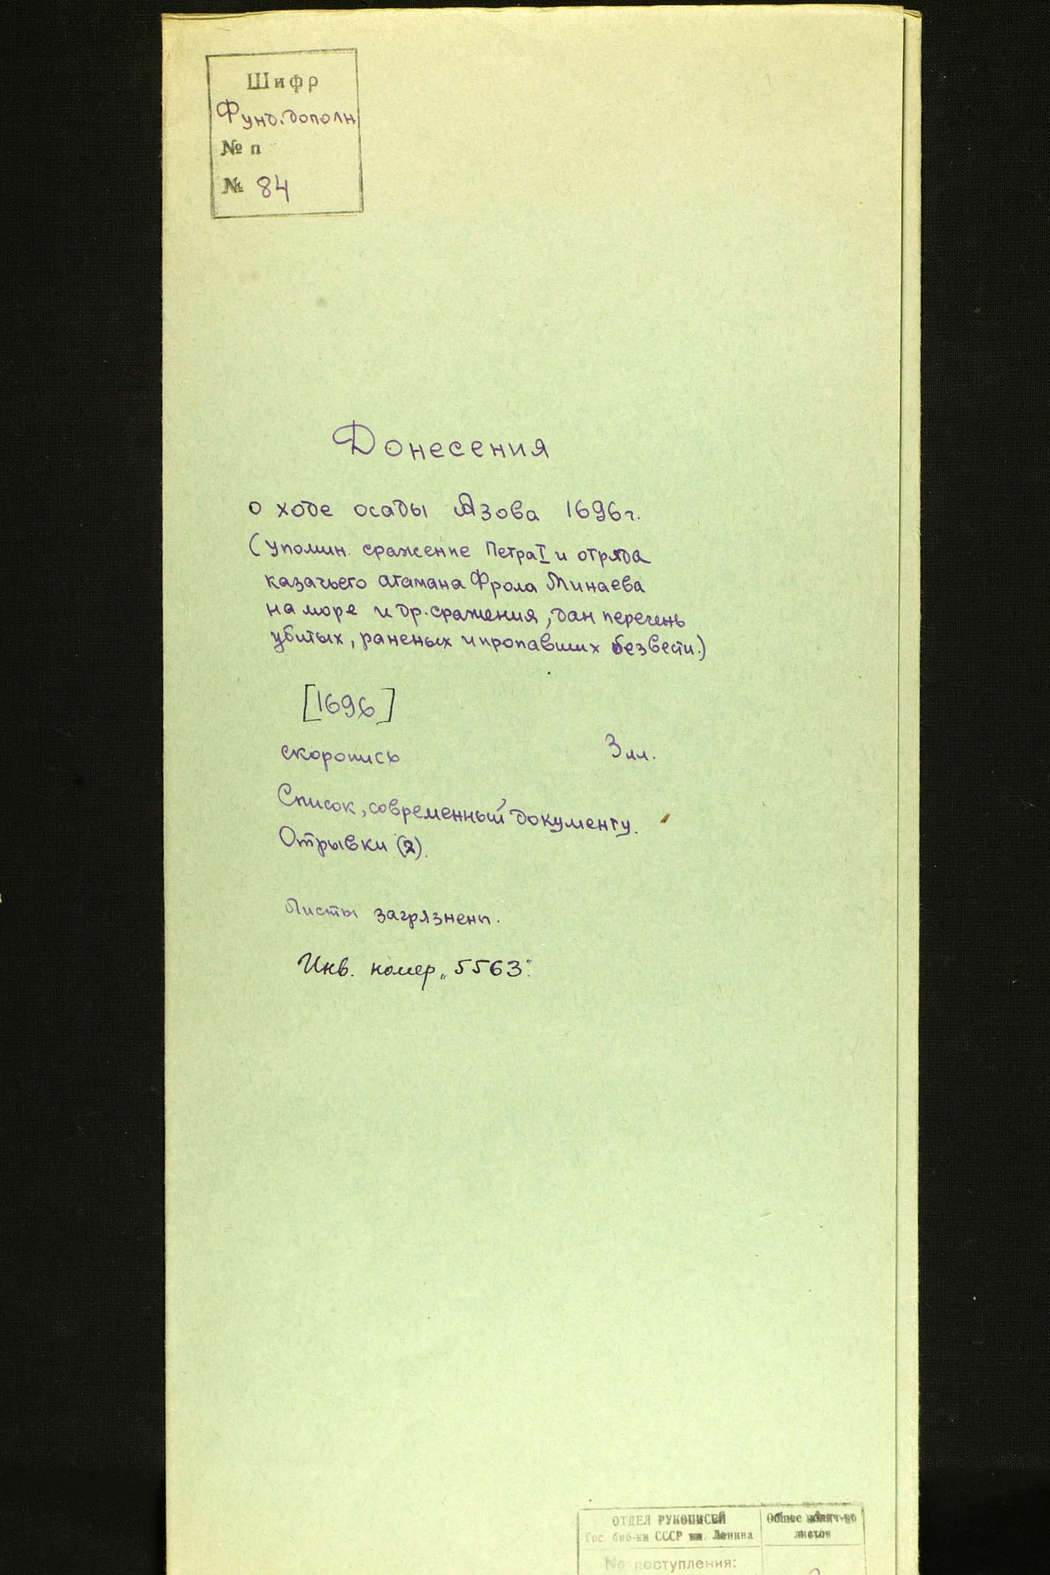 Шифр
Фунд. дополн
№ п
№ 84
Донесения
о ходе осады Азова 1696г.
(упомин. сражение Петра I и отряда
казачьего атамана Фрола Минаева
на море и др. сражения, дан перечень
убитых, раненых и пропавших безвести.)
[1696]
скоропись 3 лл.
Список, современный документу.
Отрывки (2).
Листы загрязнены.
Инв. номер „5563".
ОТДЕЛ РУКОПИСЕЙ
Гос. биб-ки СССР им. Ленина
№ поступления:
Общее колич-во
листов